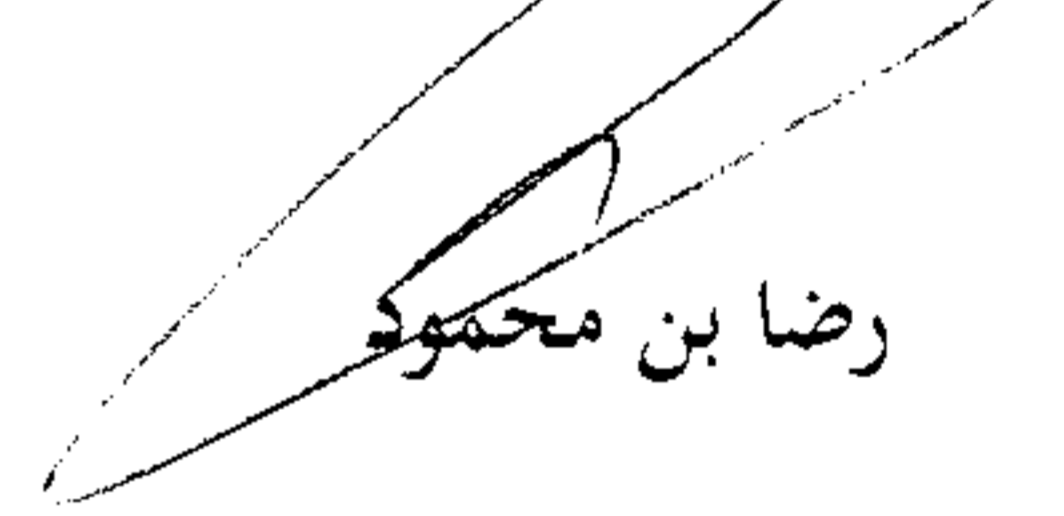 رضا بن محمود